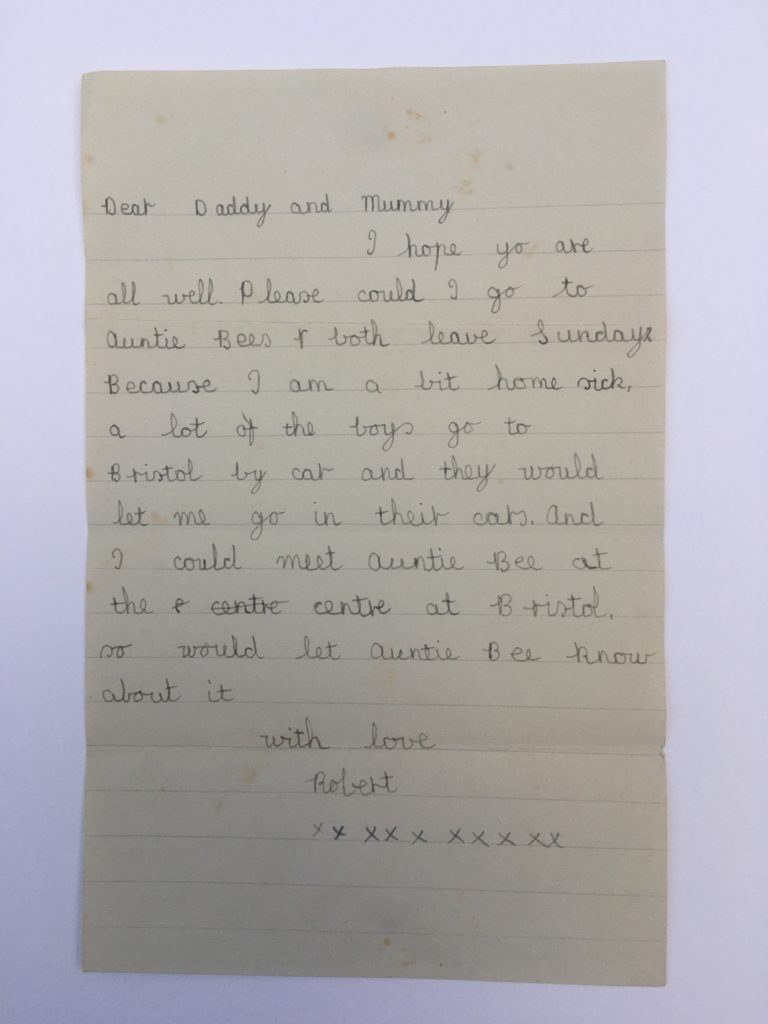 Dear Daddy and Mummy
I hope yo are
all well. Please could I go to
Auntie Bees both leave Sundays
Because I am a bit home sick,
a lot of the boys go to
Bristol by car and they would
let me go in their cars. And
I could meet Auntie Bee at
the centre centre at Bristol,
so would let Auntie Bee know
about it
with love
Robert
xx xxx xxxxx